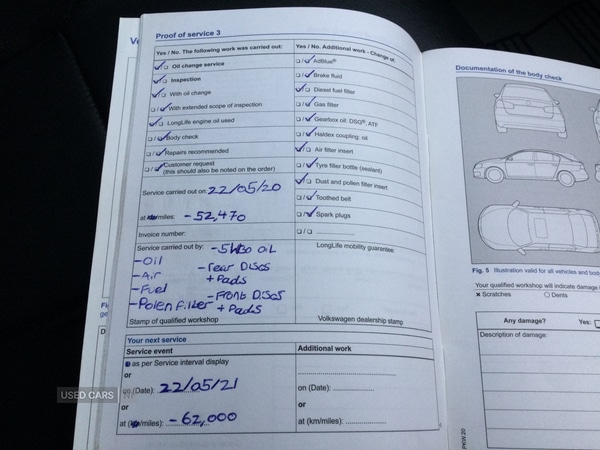 Proof of service 3
Yes / No. The following work was carried out:
☑ ❏ Oil change service
☑ ❏ Inspection
☑ ❏ With oil change
❏ / ☑ With extended scope of inspection
☑ ❏ LongLife engine oil used
❏ / ☑ Body check
❏ / ☑ Repairs recommended
❏ / ☑ Customer request
(this should also be noted on the order)
Service carried out on: 22/05/20
at km/miles: - 52,470
Invoice number:
Service carried out by: - 5W30 OIL
- OIL
- Air
- Fuel
- Polen Filter
- rear DISCS
+ Pads
- Front DISCS
+ Pads
Stamp of qualified workshop
Yes / No. Additional work - Change of:
❏ / ☑ AdBlue®
❏ / ☑ Brake fluid
☑ ❏ Diesel fuel filter
❏ / ☑ Gas filter
❏ / ☑ Gearbox oil: DSG®, ATF
❏ / ☑ Haldex coupling: oil
☑ ❏ Air filter insert
❏ / ☑ Tyre filler bottle (sealant)
☑ ❏ Dust and pollen filter insert
❏ / ☑ Toothed belt
❏ / ☑ Spark plugs
❏ / ❏ ....................
LongLife mobility guarantee:
Volkswagen dealership stamp
Your next service
Service event
as per Service interval display
or
on (Date): 22/05/21
or
at (km/miles): - 62,000
Additional work
....................
on (Date): ....................
or
at (km/miles): ....................
USED CARS NI
Documentation of the body check
Fig. 5 Illustration valid for all vehicles and body
Your qualified workshop will indicate damage
× Scratches ○ Dents
Any damage? Yes:
Description of damage:
PKW 20